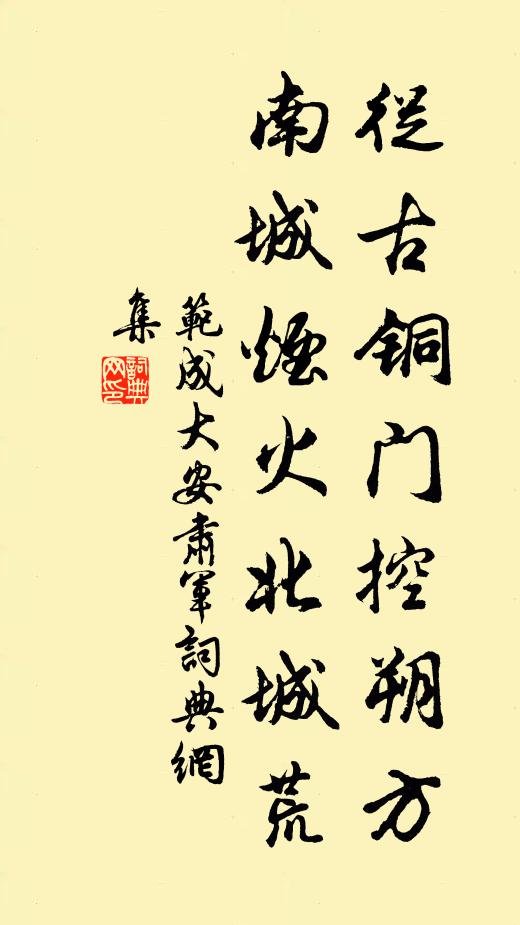 從古铜门控朔方
南城煙火北城荒
範成大安肅軍詞典網
集
詞典
网印